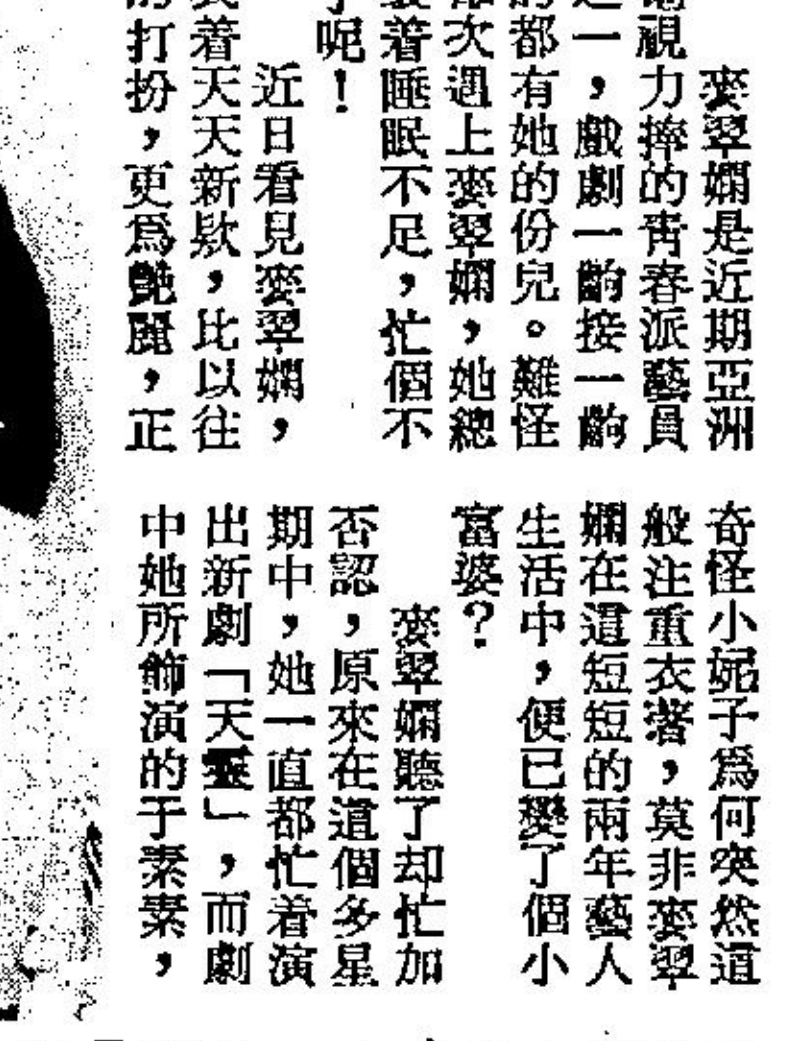 麥翠嫻是近期亞洲
電視力捧的青春派藝員
之一，戲劇一齣接一齣
的都有她的份兒。難怪
每次遇上麥翠嫻，她總
裝着睡眠不足，忙個不
了呢！
近日看見麥翠嫻，
衣着天天新欵，比以往
的打扮，更爲艷麗，正
奇怪小妮子爲何突然這
般注重衣著，莫非麥翠
嫻在這短短的兩年藝人
生活中，便已變了個小
富婆？
麥翠嫻聽了却忙加
否認，原來在這個多星
期中，她一直都忙着演
出新劇「天蠶」，而劇
中她所飾演的于素素，